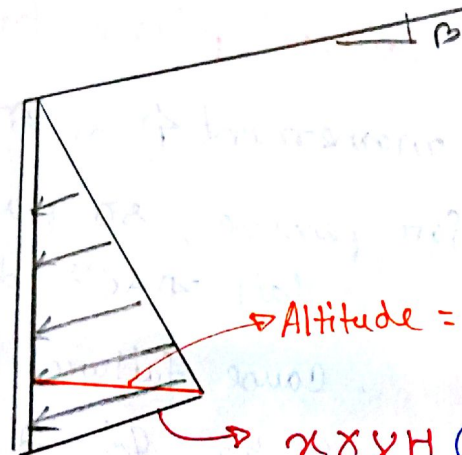 β
Altitude =
xγH (